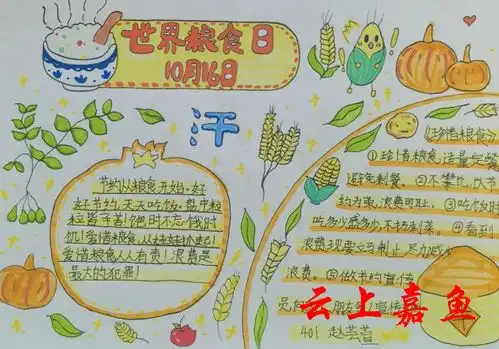 世界粮食日
10月16日
汗
节约从粮食开始:好
好节约,天天吃饭。盘中粒
粒皆辛苦!饱时不忘饿时
饥!爱惜粮食,从娃娃抓起!
爱惜粮食人人有责!浪费是
最大的犯罪!
《珍惜粮食》
①珍惜粮食,适量定餐
剩餐。②不攀比,以节
约为荣,浪费可耻。③吃饭时
吃多少盛多少不扔剩菜。④看到
浪费现象
浪费。⑤做节约宣传
员向
宣传
401 赵芸萱
云上嘉鱼